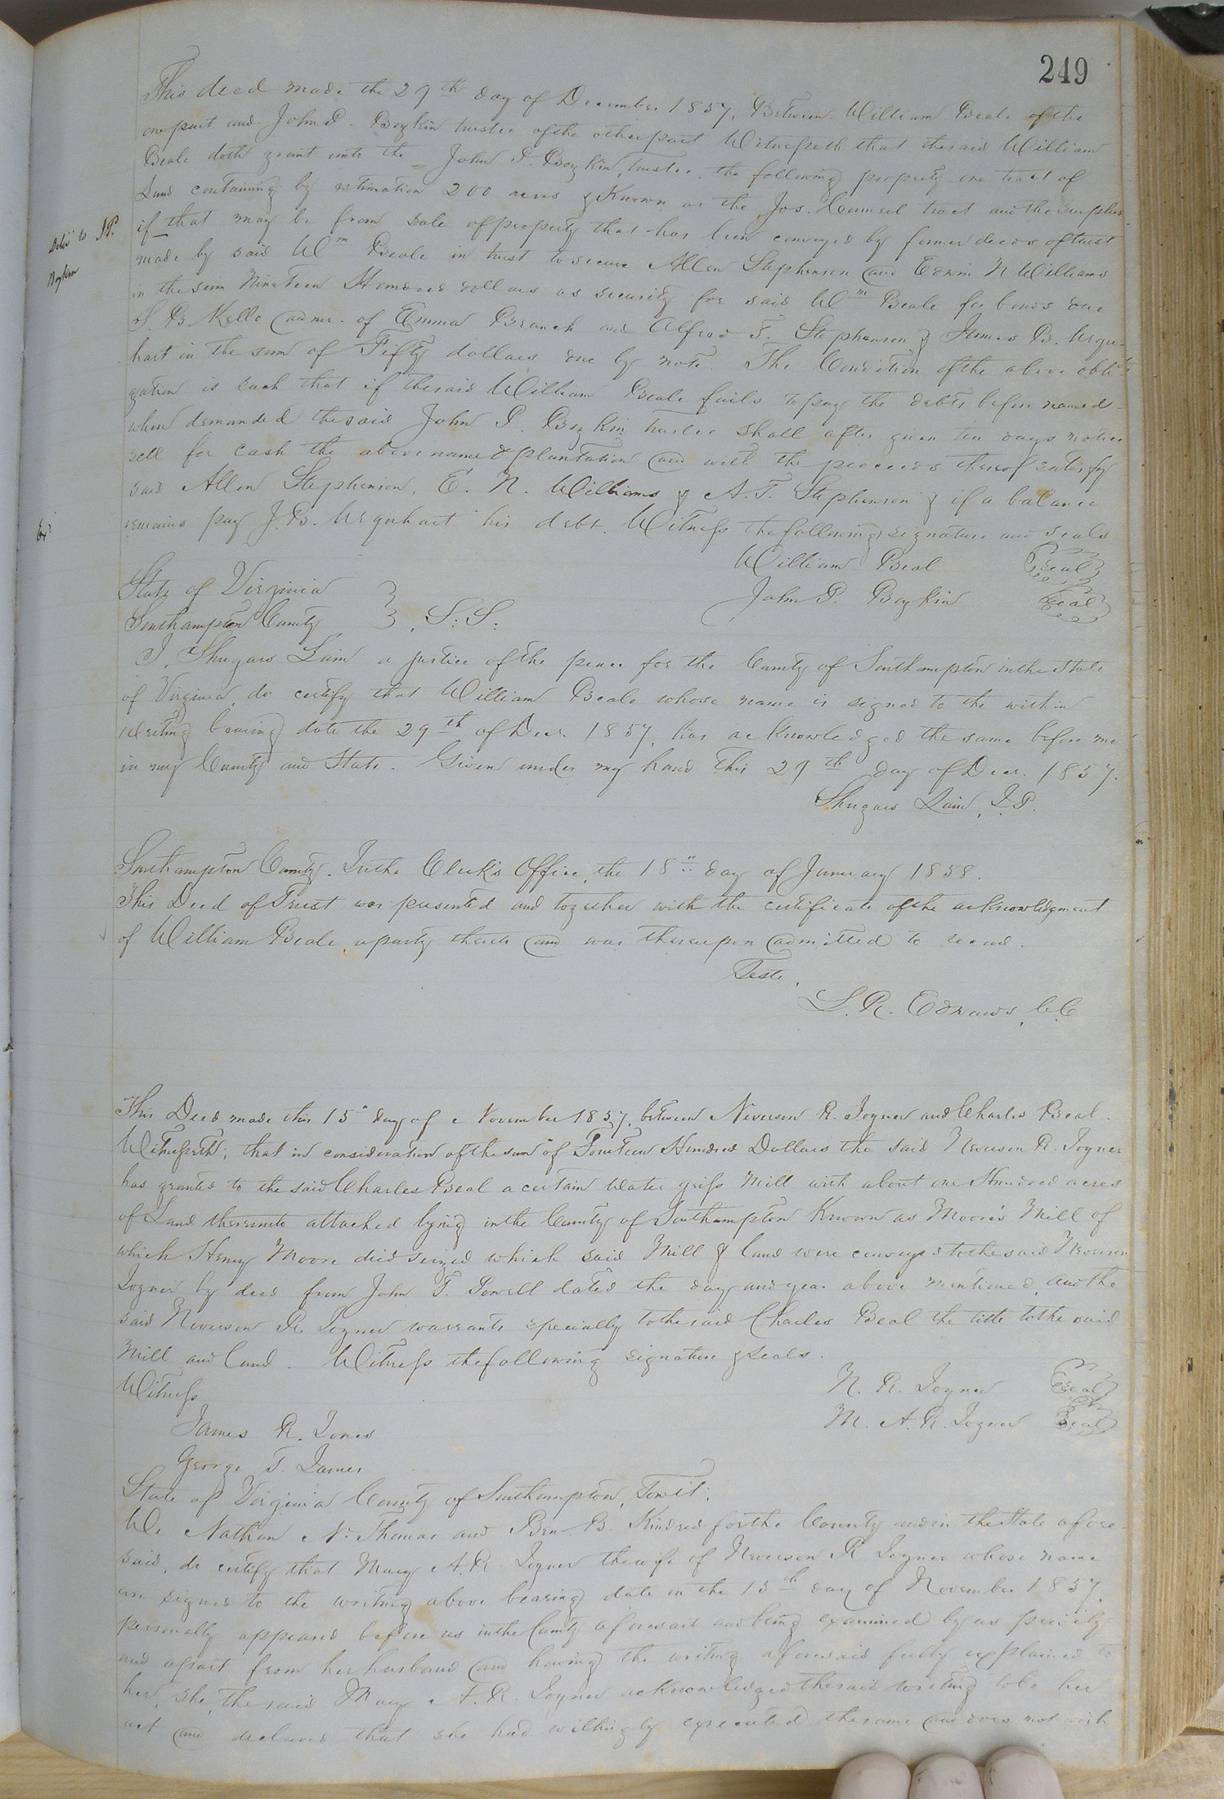 249
This deed made the 29th day of December 1857, Between William Beale of the
one part and John P. Boykin trustee of the other part Witnesseth that the said William
Beale doth grant unto the John P. Boykin, trustee, the following property one tract of
Land containing by estimation 200 acres & Known as the Jos. Council tract and the surplus
if that may be from sale of property that has been conveyed by former deeds of trust
made by said Wm Beale in trust to secure Allen Stephenson and Edwin N Williams
in the sum Nineteen Hundred dollars as security for said Wm Beale for bonds due
S. B Kello admr. of Emma Branch and Alfred T. Stephenson & James B. Urqu-
hart in the sum of Fifty dollars due by note. The Condition of the above obli-
gation is such that if the said William Beale fails to pay the debts before named
when demanded the said John P. Boykin trustee shall after given ten days notice
sell for cash the above named plantation and with the proceeds thereof satisfy
said Allen Stephenson, E. N. Williams & A. T. Stephenson & if a balance
remains pay J. B. Urquhart his debt. Witness the following signature and seals
William Beal Seal
John P. Boykin Seal
Deld to J.P.
Boykin
State of Virginia
Southampton County S. S.
I, Shugars Lain a justice of the peace for the County of Southampton in the State
of Virginia, do certify that William Beale whose name is signed to the within
writing bearing date the 29th of Decr. 1857, has acknowledged the same before me
in my County and State. Given under my hand this 29th day of Decr. 1857.
Shugars Lain, J.P.
Southampton County. In the Clerk's Office, the 18" day of January 1858.
This Deed of Trust was presented and together with the certificate of the acknowledgment
of William Beale, a party thereto and was thereupon admitted to record.
Teste,
L. R. Edwards, C.C.
This Deed made this 15" day of November 1857, between Neverson R. Joyner and Charles Beal.
Witnesseth; that in consideration of the sum of Fourteen Hundred Dollars the said Neverson R. Joyner
has granted to the said Charles Beal a certain Water griss Mill with about one Hundred acres
of Land thereunto attached lying in the County of Southampton Known as Moore's Mill of
which Henry Moore died seized which said Mill & land were conveyed to the said Neverson
Joyner by deed from John T. Powell dated the day and year above mentioned, and the
said Neverson R. Joyner warrants specially to the said Charles Beal the title to the said
Mill and land. Witness the following signature & seals.
Witness N. R. Joyner Seal
James R. Jones M. A. R. Joyner Seal
George T. James
State of Virginia County of Southampton, Towit:
We Nathan N. Thomas and Ben B. Kindred for the County and in the State afore-
said, do certify that Mary A. R. Joyner the wife of Neverson R Joyner whose name
are signed to the writing above bearing date on the 15th day of November 1857,
personally appeared before us in the County aforesaid and being examined by us privily
and apart from her husband and having the writing aforesaid fully explained to
her, she, the said Mary A. R. Joyner acknowledged the said writing to be her
act and declared that she had willingly executed the same and does not wish